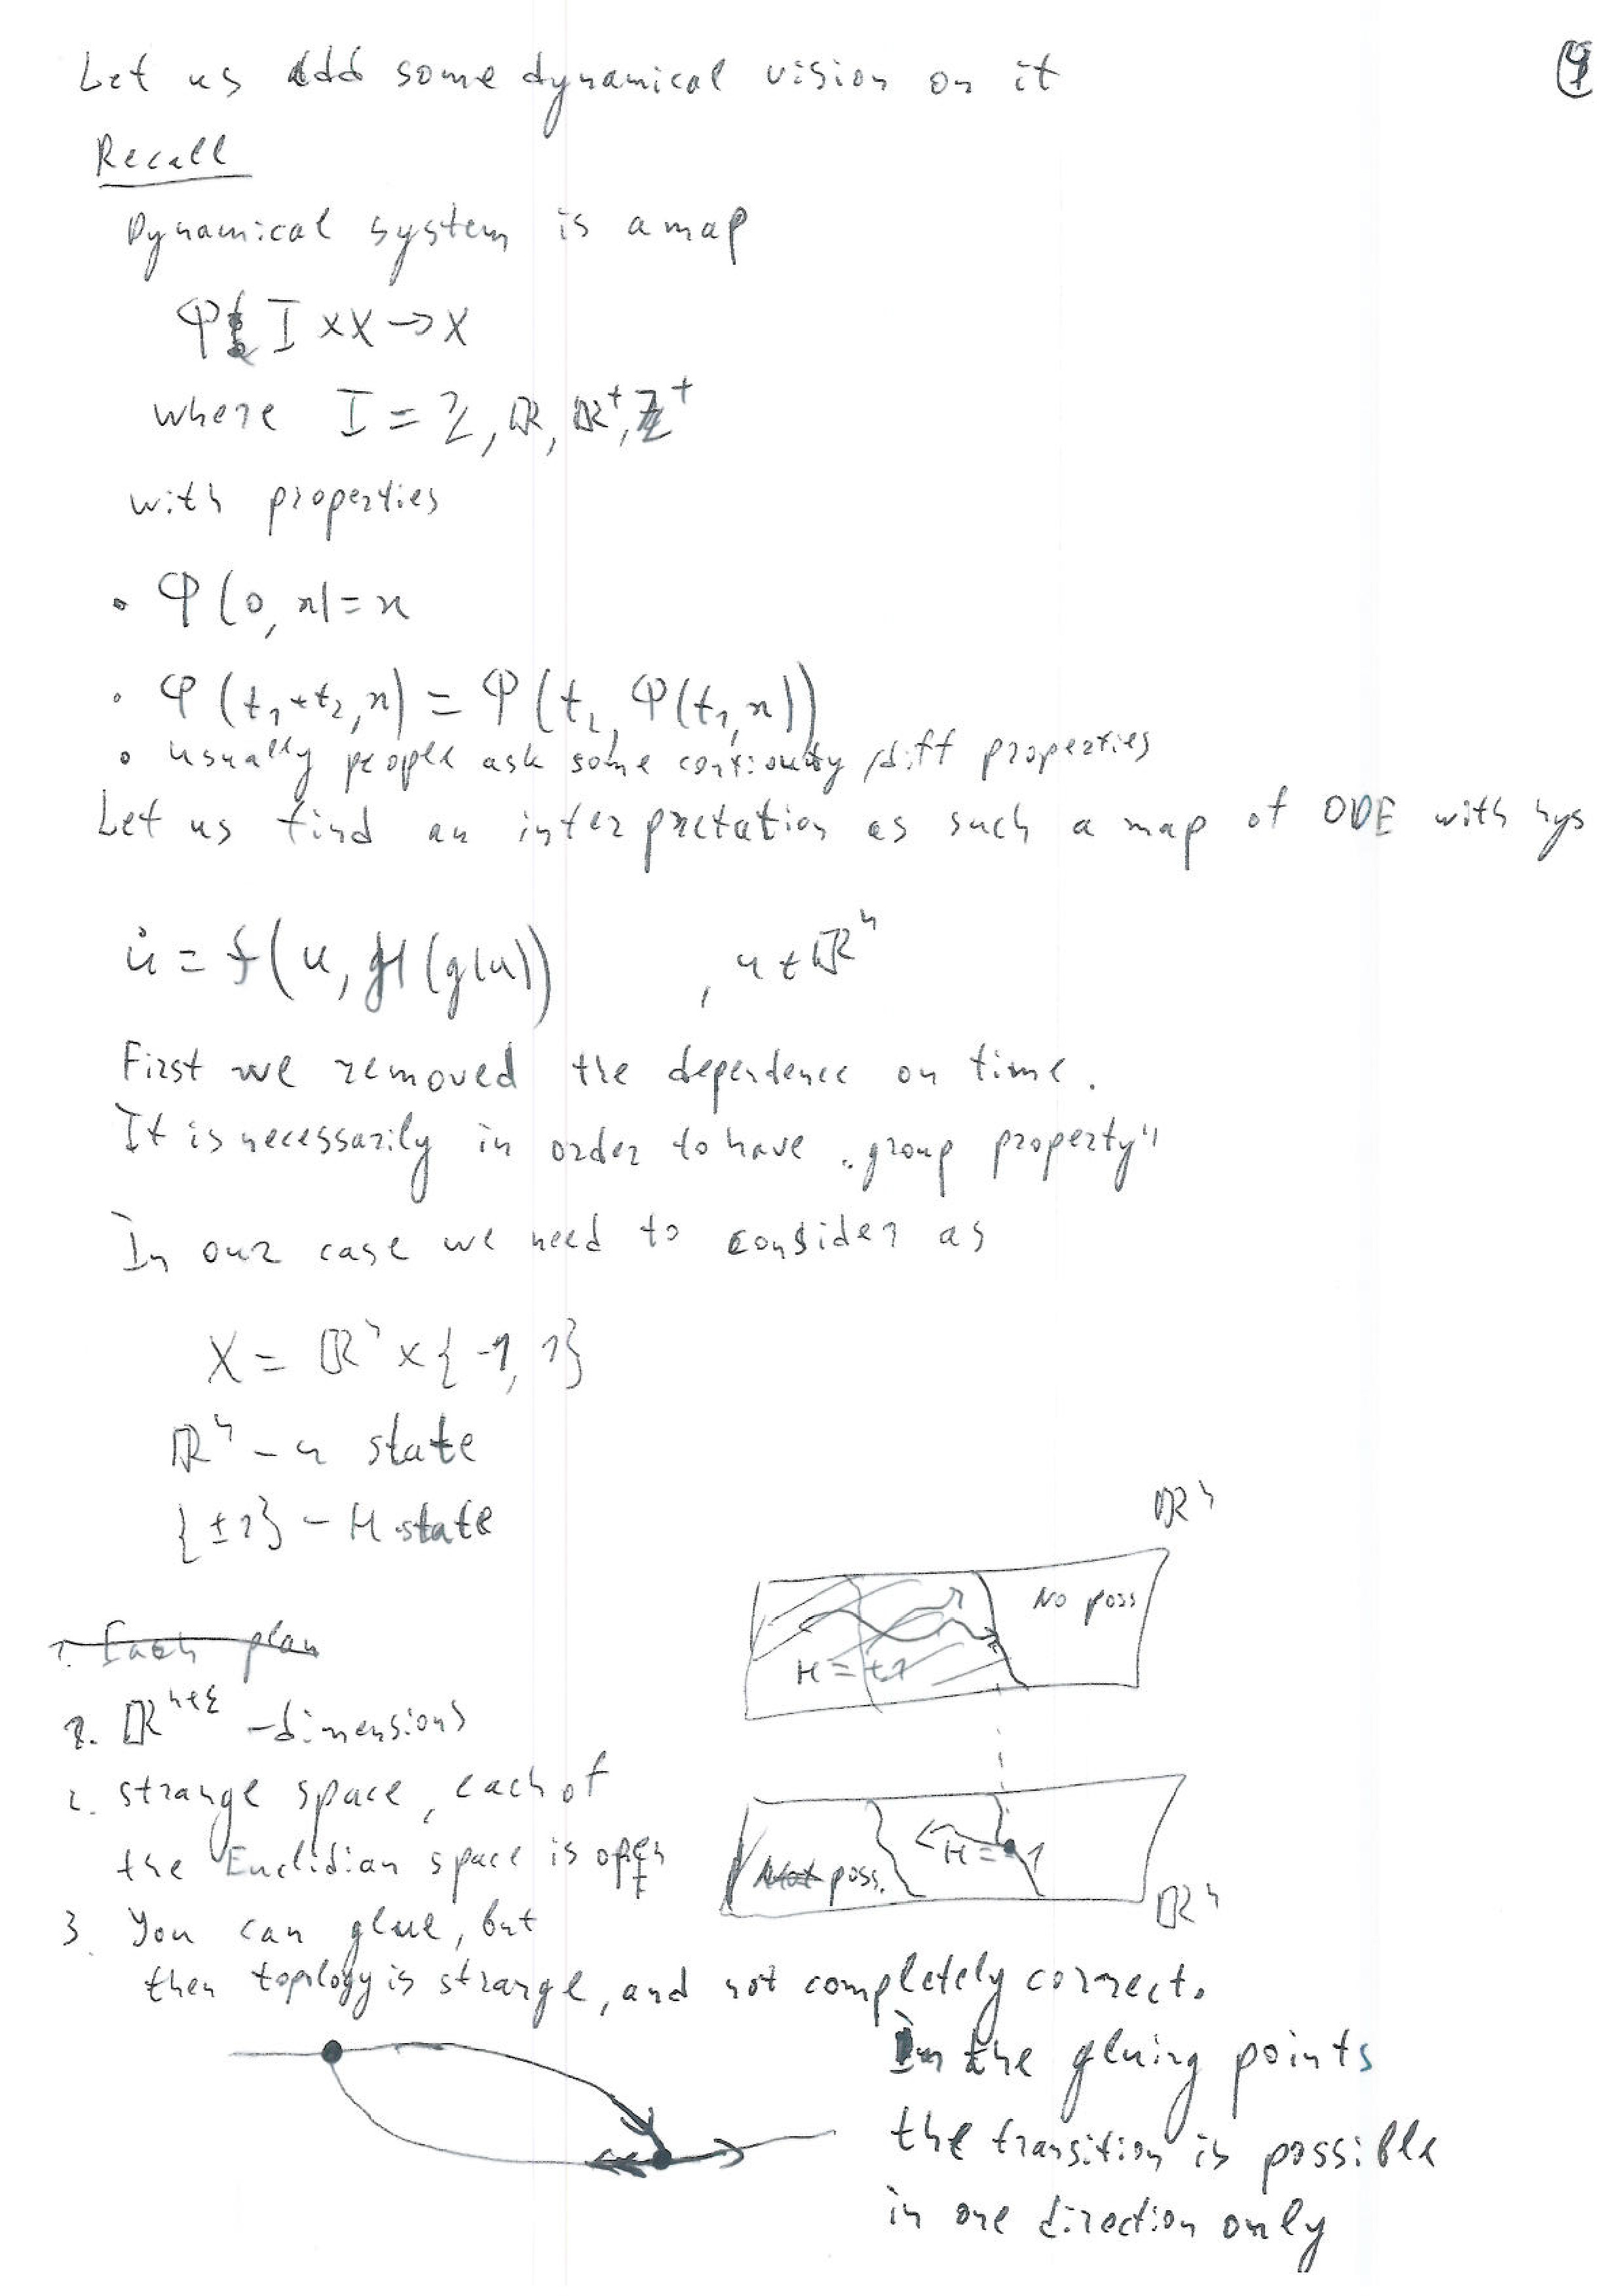 Let us add some dynamical vision on it
9
Recall
Dynamical system is a map
φ: I × X → X
where I = Z, ℝ, ℝ⁺, Z⁺
with properties
• φ(0, x) = x
• φ(t₁+t₂, x) = φ(t₂, φ(t₁, x))
• usually people ask some continuity/diff properties
Let us find an interpretation as such a map of ODE with hys
u̇ = f(u, H(g(u)) , u ∈ ℝⁿ
First we removed the dependence on time.
It is necessarily in order to have „group property"
In our case we need to consider as
X = ℝⁿ × {-1, 1}
ℝⁿ - u state
{±1} - H state
ℝⁿ
No poss
H = +1
1. Each plan
1. ℝⁿ⁺ᵋ - dimensions
2. strange space, each of
the Euclidian space is open
H = -1
Not poss.
ℝⁿ
3. You can glue, but
then topology is strange, and not completely correct.
In the gluing points
the transition is possible
in one direction only